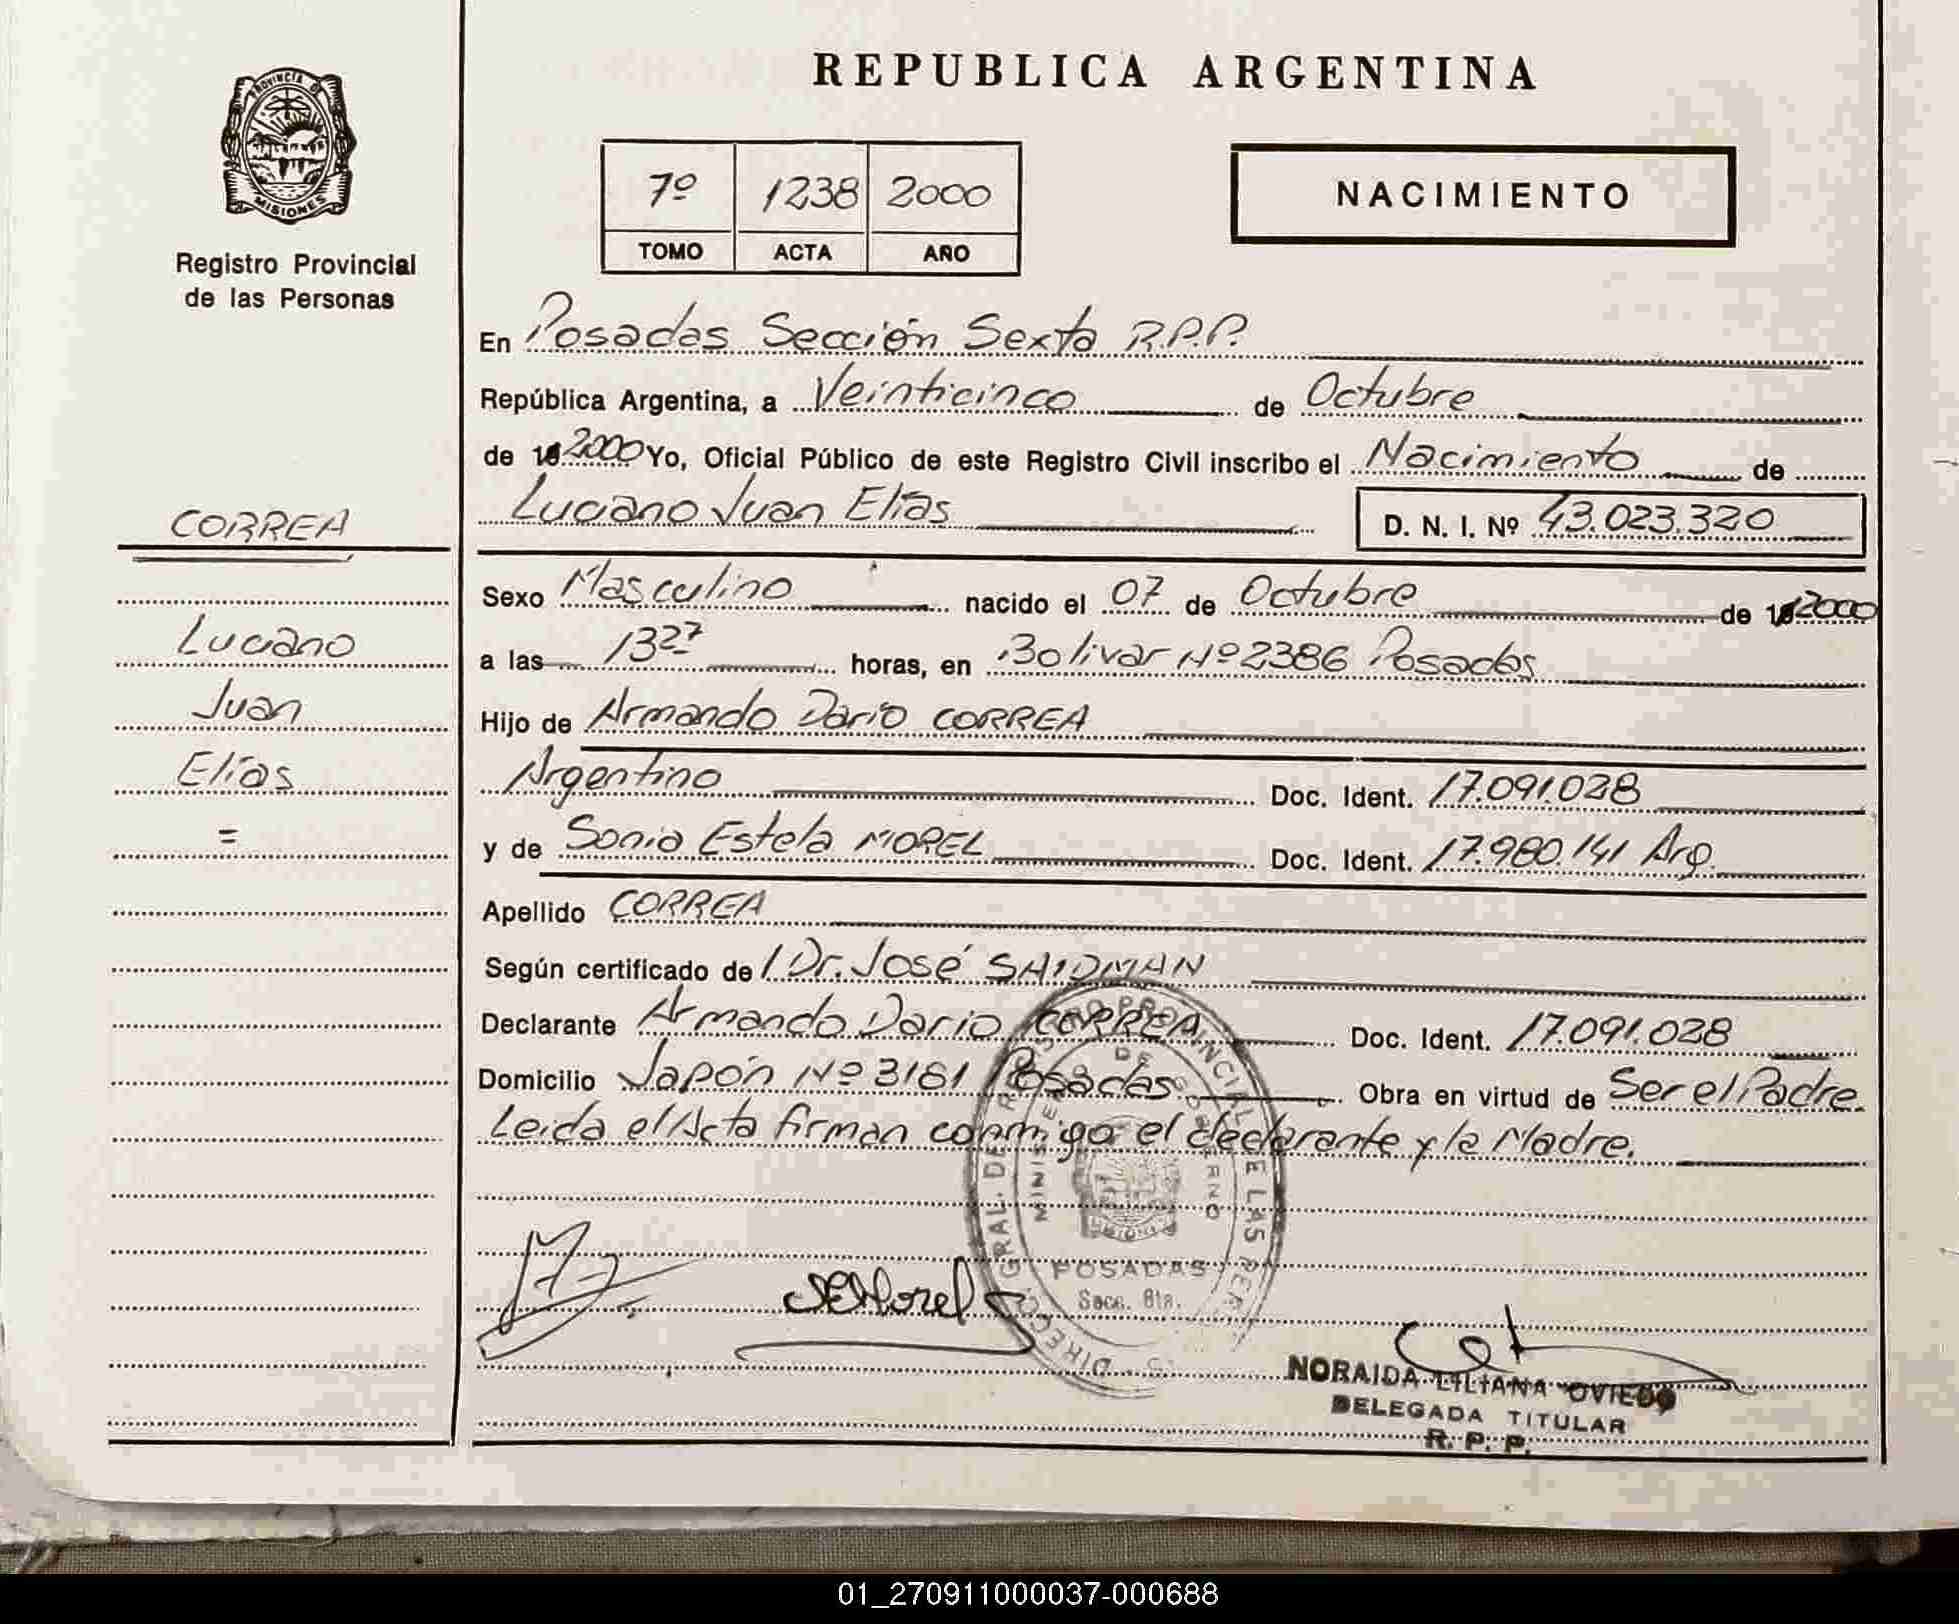 REPUBLICA ARGENTINA
PROVINCIA DE
MISIONES
Registro Provincial
de las Personas
7º 1238 2000
TOMO ACTA AÑO
NACIMIENTO
En Posadas Sección Sexta R.P.P.
República Argentina, a Veinticinco de Octubre
de 2000 Yo, Oficial Público de este Registro Civil inscribo el Nacimiento de
Luciano Juan Elías D. N. I. Nº 43.023.320
CORREA
Luciano
Juan
Elías
=
Sexo Masculino nacido el 07 de Octubre de 2000
a las 13 27 horas, en Bolivar Nº 2386 Posadas
Hijo de Armando Dario CORREA
Argentino Doc. Ident. 17.091.028
y de Sonia Estela MOREL Doc. Ident. 17.980.141 Arg.
Apellido CORREA
Según certificado de Dr. José SAIDMAN
Declarante Armando Dario CORREA Doc. Ident. 17.091.028
Domicilio Japón Nº 3161 Posadas Obra en virtud de Ser el Padre.
Leida el Acta firman conmigo el declarante y la Madre.
DIREC. GRAL. DE REGISTRO PROVINCIAL DE LAS PERS
MINISTERIO DE GOBIERNO
POSADAS
Secc. 6ta.
SEMorel
NORAIDA LILIANA OVIEDO
DELEGADA TITULAR
R. P. P.
01_270911000037-000688